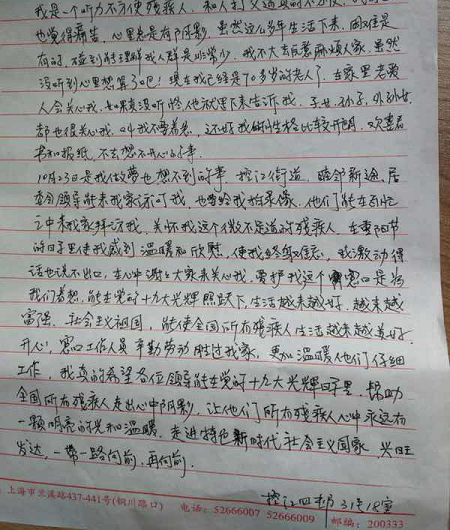 我是一个听力不方便残疾人，和人打交道真的
也觉得痛苦，心里总是有阴影，虽然这么多年生活下来，困难是
有的，碰到能理解我人群是非常少，我不大去麻烦人家，虽然
没听到心里想算了吧！现在我已经是70多岁的老人了，在家里老爱
人会关心我，如果我没听懂他就写下来告诉我，子女、孙子、外孙女
都也很关心我，叫我不要着急，还好我的性格比较开朗，欢喜看
书和报纸，不去想不开心的事。
10月23日是我做梦也想不到的事，控江街道，睦邻新途，居
委会领导能来我家访问我，也曾给我拍录像，他们能在百忙
之中来我家拜访我，关怀我这个微不足道的残疾人，在重阳节
的日子里使我感到温暖和欣慰，使我终身难忘，我激动得
话也说不出口，在心中谢谢大家来关心我，爱护我这个
我们着想，能在党的十九大光辉照跃下，生活越来越好，越来越
富强，社会主义祖国，能使全国所有残疾人生活越来越美好，
开心，窗口工作人员辛勤劳动胜过我家，更加温暖他们仔细
工作，我真的希望各位领导能在党的十九大光辉日子里，帮助
全国所有残疾人走出心中阴影，让他们所有残疾人心中永远有
一颗明亮的光和温暖，走进特色新时代社会主义国家，兴旺
发达，一带一路向前，再向前。
控江四村31号18室
上海市兰溪路437-441号(铜川路口) 电话：52666007 52666009 邮编：200333